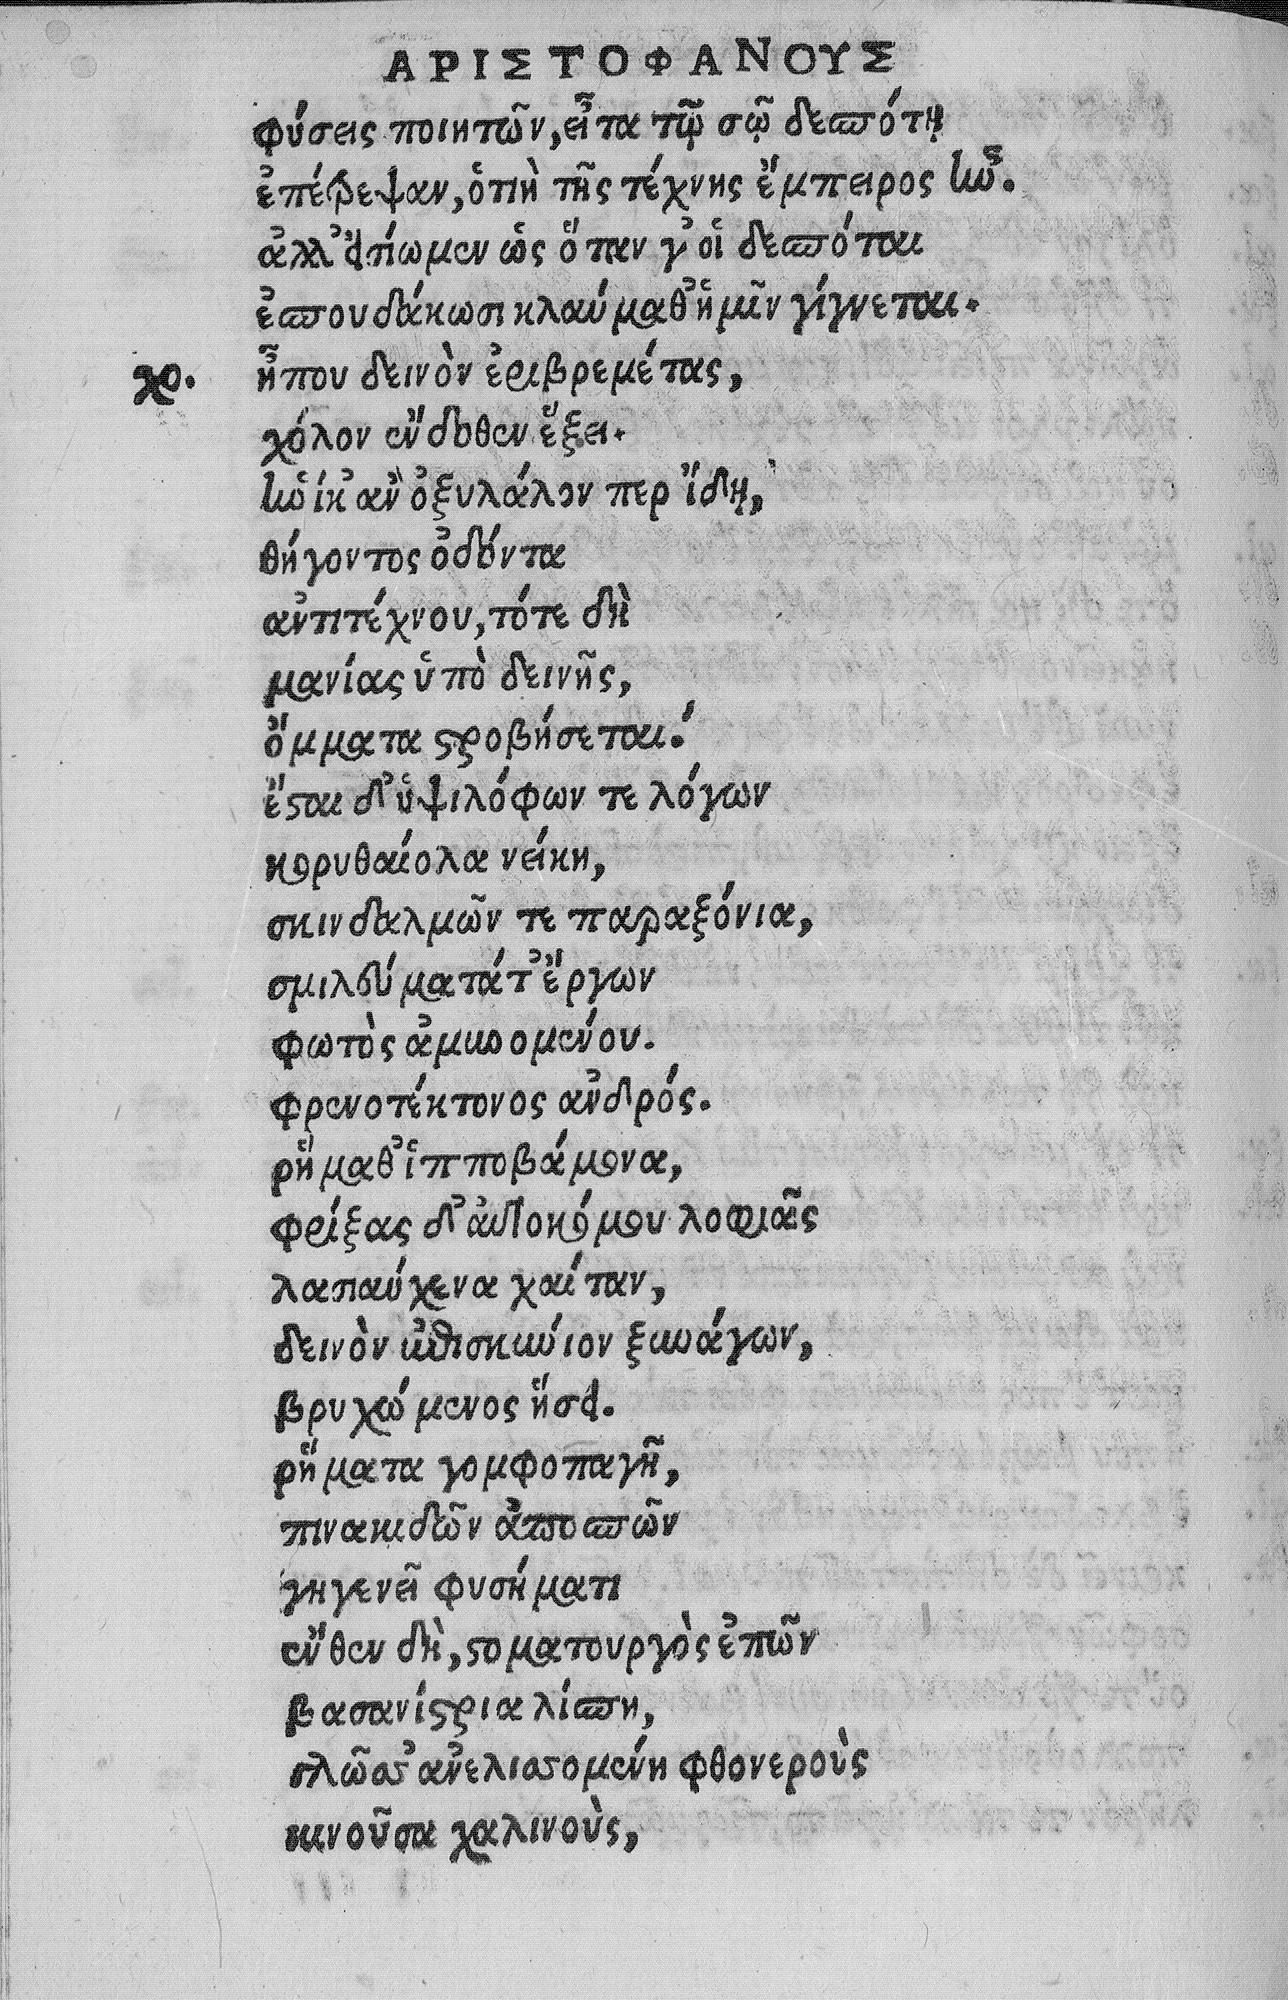 ΑΡΙΣΤΟΦΑΝΟΥΣ
φύσεις ποιητῶν, εἶτα τῷ σῷ δεσπότῃ
ἐπέτρεψαν, ὁτιὴ τῆς τέχνης ἔμπειρος ἦν.
ἀλλ' εἰσίωμεν ὡς ὅταν γ' οἱ δεσπόται
ἐσπουδάκωσι κλαύμαθ' ἡμῖν γίγνεται.
χο. ἦπου δεινὸν ἐριβρεμέτας,
χόλον ἔνδοθεν ἕξει.
ἡνίκ' ἂν ὀξυλάλον περ ἴδῃ,
θήγοντος ὀδόντα
ἀντιτέχνου, τότε δὴ
μανίας ὑπὸ δεινῆς,
ὄμματα στροβήσεται.
ἔσται δ' ὑψιλόφων τε λόγων
κορυθαίολα νείκη,
σκινδαλμῶν τε παραξόνια,
σμιλεύματά τ' ἔργων
φωτὸς ἀμυνομένου.
φρενοτέκτονος ἀνδρός.
ῥήμαθ' ἱπποβάμονα,
φρίξας δ' αὐτοκόμου λοφιᾶς
λασιαύχενα χαίταν,
δεινὸν ἐπισκύνιον ξυνάγων,
βρυχώμενος ἥσει.
ῥήματα γομφοπαγῆ,
πινακιδῶν ἀποσπῶν
γηγενεῖ φυσήματι
ἔνθεν δὴ, στοματουργὸς ἐπῶν
βασανίστρια λίσπη,
γλῶσσ' ἀνελισσομένη φθονεροὺς
κινοῦσα χαλινοὺς,